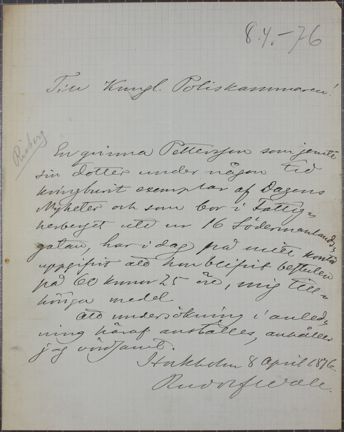 8.4.-76
Till Kungl. Poliskammaren!
Risberg
En qvinna Pettersson som jemte
sin dotter under någon tid
kringburit exemplar af Dagens
Nyheter och som bor i Fattig-
herberget uti nr 16 Södermanlands-
gatan, har i dag på mitt kontor
uppgifvit att hon blifvit bestulen
på 60 kronor 25 öre, mig till-
höriga medel.
Att undersökning i anled-
ning häraf anställes, anhåller
jag vördsamt.
Stockholm 8 April 1876.
Rudolf Wall.